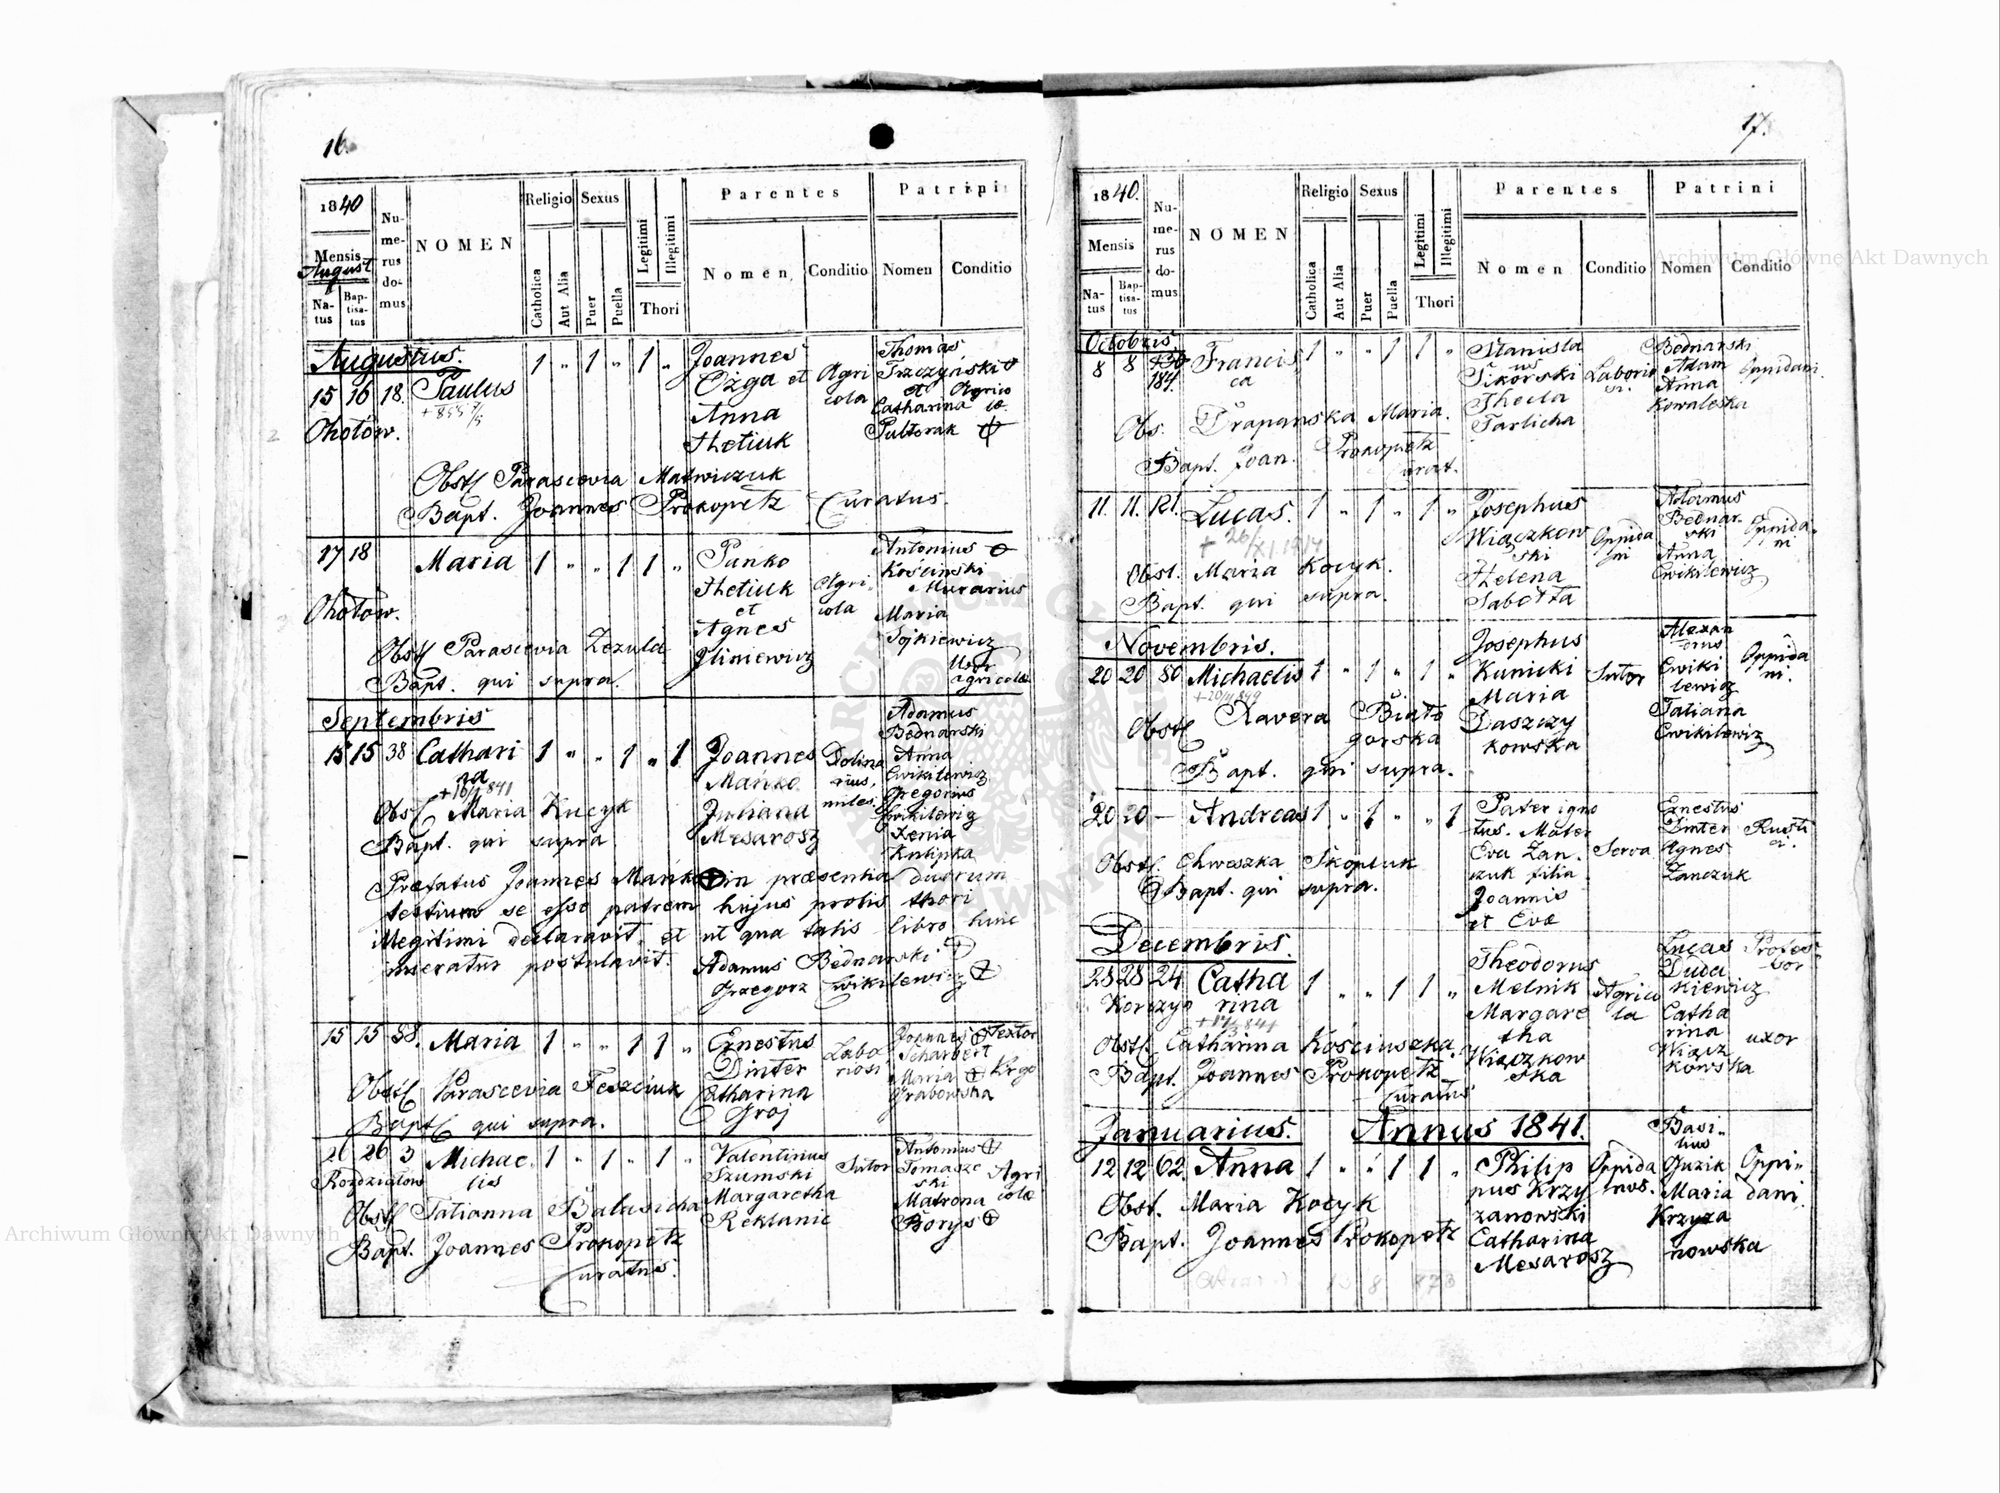 16.
1840
Numerus domus
NOMEN
Religio
Sexus
Legitimi
Illegitimi
Thori
Parentes
Patrini
Mensis
August
Natus
Baptisatus
Catholica
Aut Alia
Puer
Puella
Nomen
Conditio
Nomen
Conditio
Augustus.
15 16 18. Paulus 1 " 1 " 1 " Joannes Ożga et Anna Hetiuk Agricola Thomas Trzczyński et Catharina Pulterak Agricolæ
Ohotów.
Obst. Parascevia Matwiczuk
Bapt. Joannes Prokopetz Curatus.
17 18 Maria 1 " " 1 1 " Panko Hetiuk et Agnes Agricola Antonius Kościnski Murarius Maria
Ohotów.
Obst. Parascevia
Bapt. qui supra.
Septembris
15 15 38 Catharina 1 " " 1 " 1 Joannes Mańko Juliana Mesarosz miles. Adamus Bednarski Anna Cwikilewicz Gregorius Cwikilewicz Xenia
Obst. Maria Kucyk
Bapt. qui supra
Præfatus Joannes Mańko in præsentia duorum
testium se esse patrem hujus prolis thori
illegitimi declaravit, et ut qua talis libro huic
inseratur postulavit.
Adamus Bednarski
Grzegorz Cwikilewicz
15 15 58. Maria 1 " " 1 1 " Ernestus Dinter Catharina Groj Laboriosi Joannes Scharbert Textor Maria Grabowska
Obst. Parascevia Feszciuk
Bapt. qui supra.
26 26 3 Michaelis 1 " 1 " 1 " Valentinus Szumski Margaretha Sutor Antonius Tomaszewski Matrona Borys Agricolæ
Rozdziałów
Obst. Tatianna Balusicha
Bapt. Joannes Prokopetz
Curatus.
17.
1840.
Numerus domus
NOMEN
Religio
Sexus
Legitimi
Illegitimi
Thori
Parentes
Patrini
Mensis
Natus
Baptisatus
Catholica
Aut Alia
Puer
Puella
Nomen
Conditio
Nomen
Conditio
Octobris.
8 8 184. Francisca 1 " " 1 1 " Stanislaus Sikorski Thecla Tarlicha Laboriosi. Bednarski Adam Anna Kowalska Oppidani.
Obs. Drapanska Maria.
Bapt. Joan. Prokopetz
Curat.
11. 11. 121. Lucas. 1 " 1 " 1 " Josephus Wiączkowski Helena Sabotta Oppidani Adamus Bednarski Anna Cwikilewicz Oppidani
+ 26/XI 1914
Obst. Maria Kocyk.
Bapt. qui supra.
Novembris.
20 20 80 Michaelis 1 " 1 " 1 " Josephus Kunicki Maria Daszczykowska Sutor Alexandrus Cwikilewicz Tatiana Cwikilewicz Oppidani.
Obst. Xavera Białogorska
Bapt. qui supra.
20 20 — Andreas 1 " 1 " " 1 Pater ignotus. Mater Eva Zanczuk filia Joannis et Evæ Serva Ernestus Dinter Agnes Zanczuk Rustici.
Obst. Chweszka Skopiuk
Bapt. qui supra.
Decembris.
28 28 24 Catharina 1 " " 1 1 " Theodorus Melnik Margaretha Wiączkowska Agricola Lucas Dudakiewicz Professor Catharina Wiączkowska uxor
Korczyn
Obst. Catharina Kościuszka.
Bapt. Joannes Prokopetz
Curatus
Januarius. Annus 1841.
12 12 62. Anna 1 " " 1 1 " Philippus Krzyzanowski Catharina Mesarosz Oppidanus. Basilius Guzik Maria Krzyzanowska Oppidani.
Obst. Maria Kocyk
Bapt. Joannes Prokopetz
Archiwum Główne Akt Dawnych
Archiwum Główne Akt Dawnych
ARCHIWUM GŁÓWNE AKT DAWNYCH